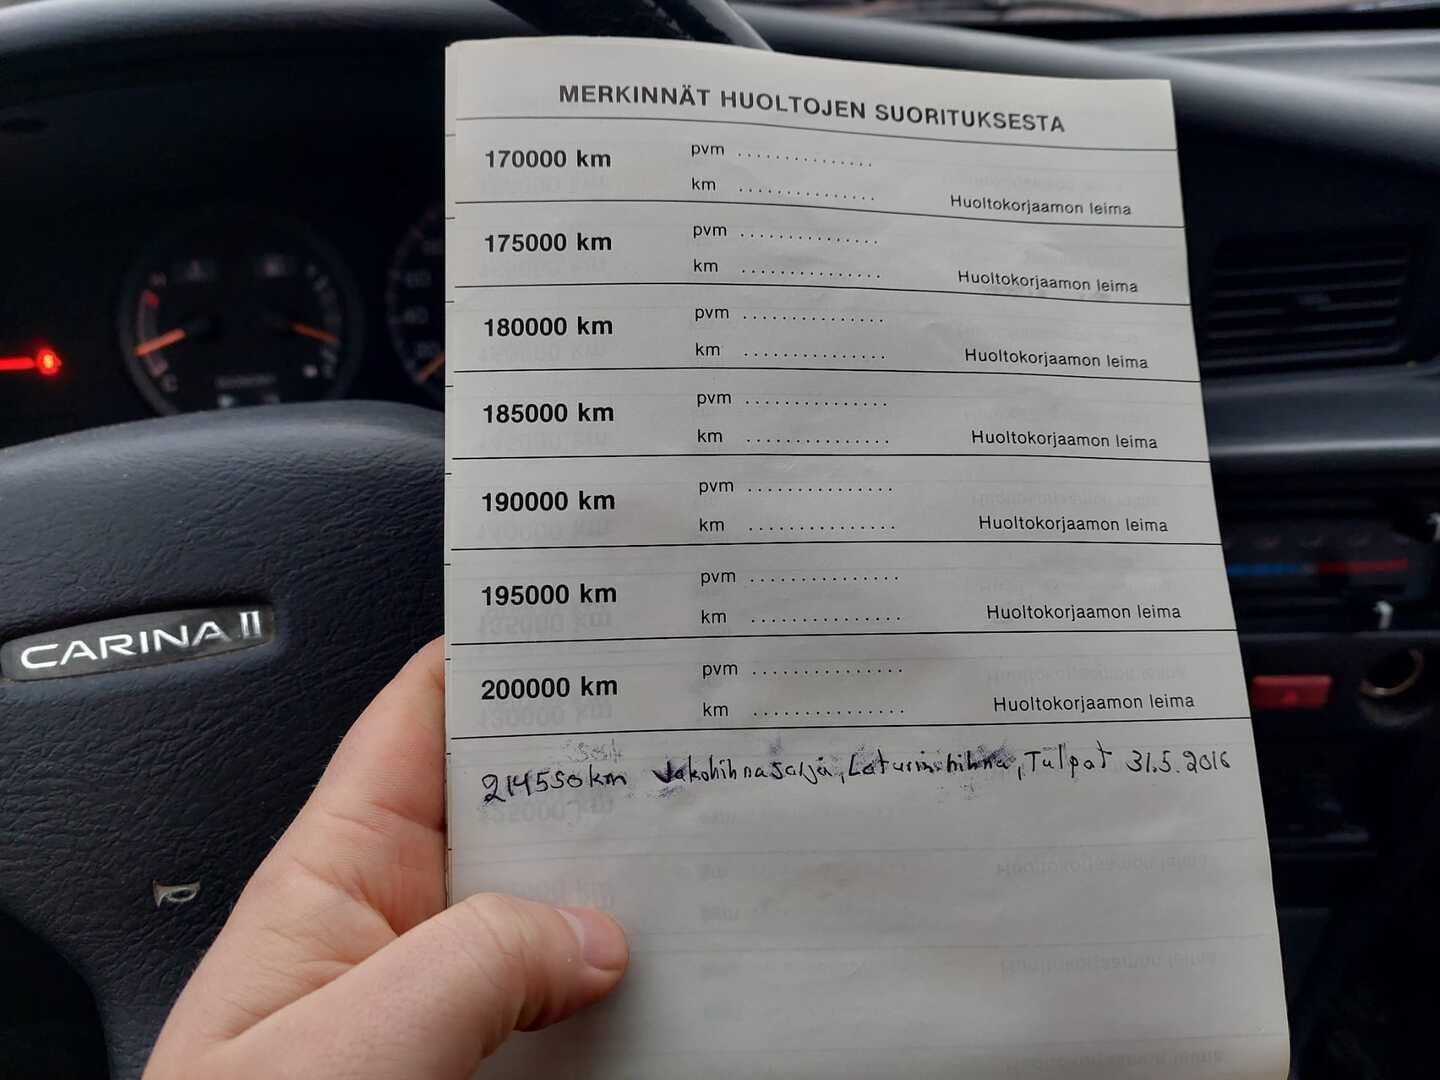 MERKINNÄT HUOLTOJEN SUORITUKSESTA
170000 km pvm ...............
km ............... Huoltokorjaamon leima
175000 km pvm ...............
km ............... Huoltokorjaamon leima
180000 km pvm ...............
km ............... Huoltokorjaamon leima
185000 km pvm ...............
km ............... Huoltokorjaamon leima
190000 km pvm ...............
km ............... Huoltokorjaamon leima
195000 km pvm ...............
km ............... Huoltokorjaamon leima
200000 km pvm ...............
km ............... Huoltokorjaamon leima
214550km Jakohihnasarja, Laturin hihna, Tulpat 31.5.2016
CARINA II